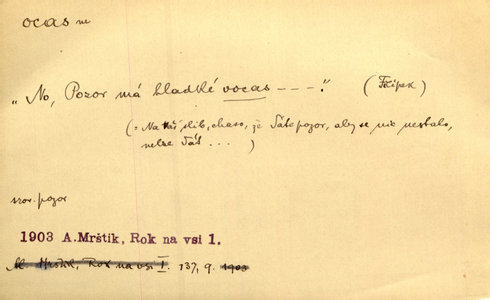 ocas m
„No, Pozor má hladké vocas – – –." (Křípek)
(= Na váš slib, chaso, že dáte pozor, aby se nic nestalo,
nelze dát ... )
srov. pozor
1903 A. Mrštík, Rok na vsi 1.
M. Mrštík, Rok na vsi I. 137, 9. 1903